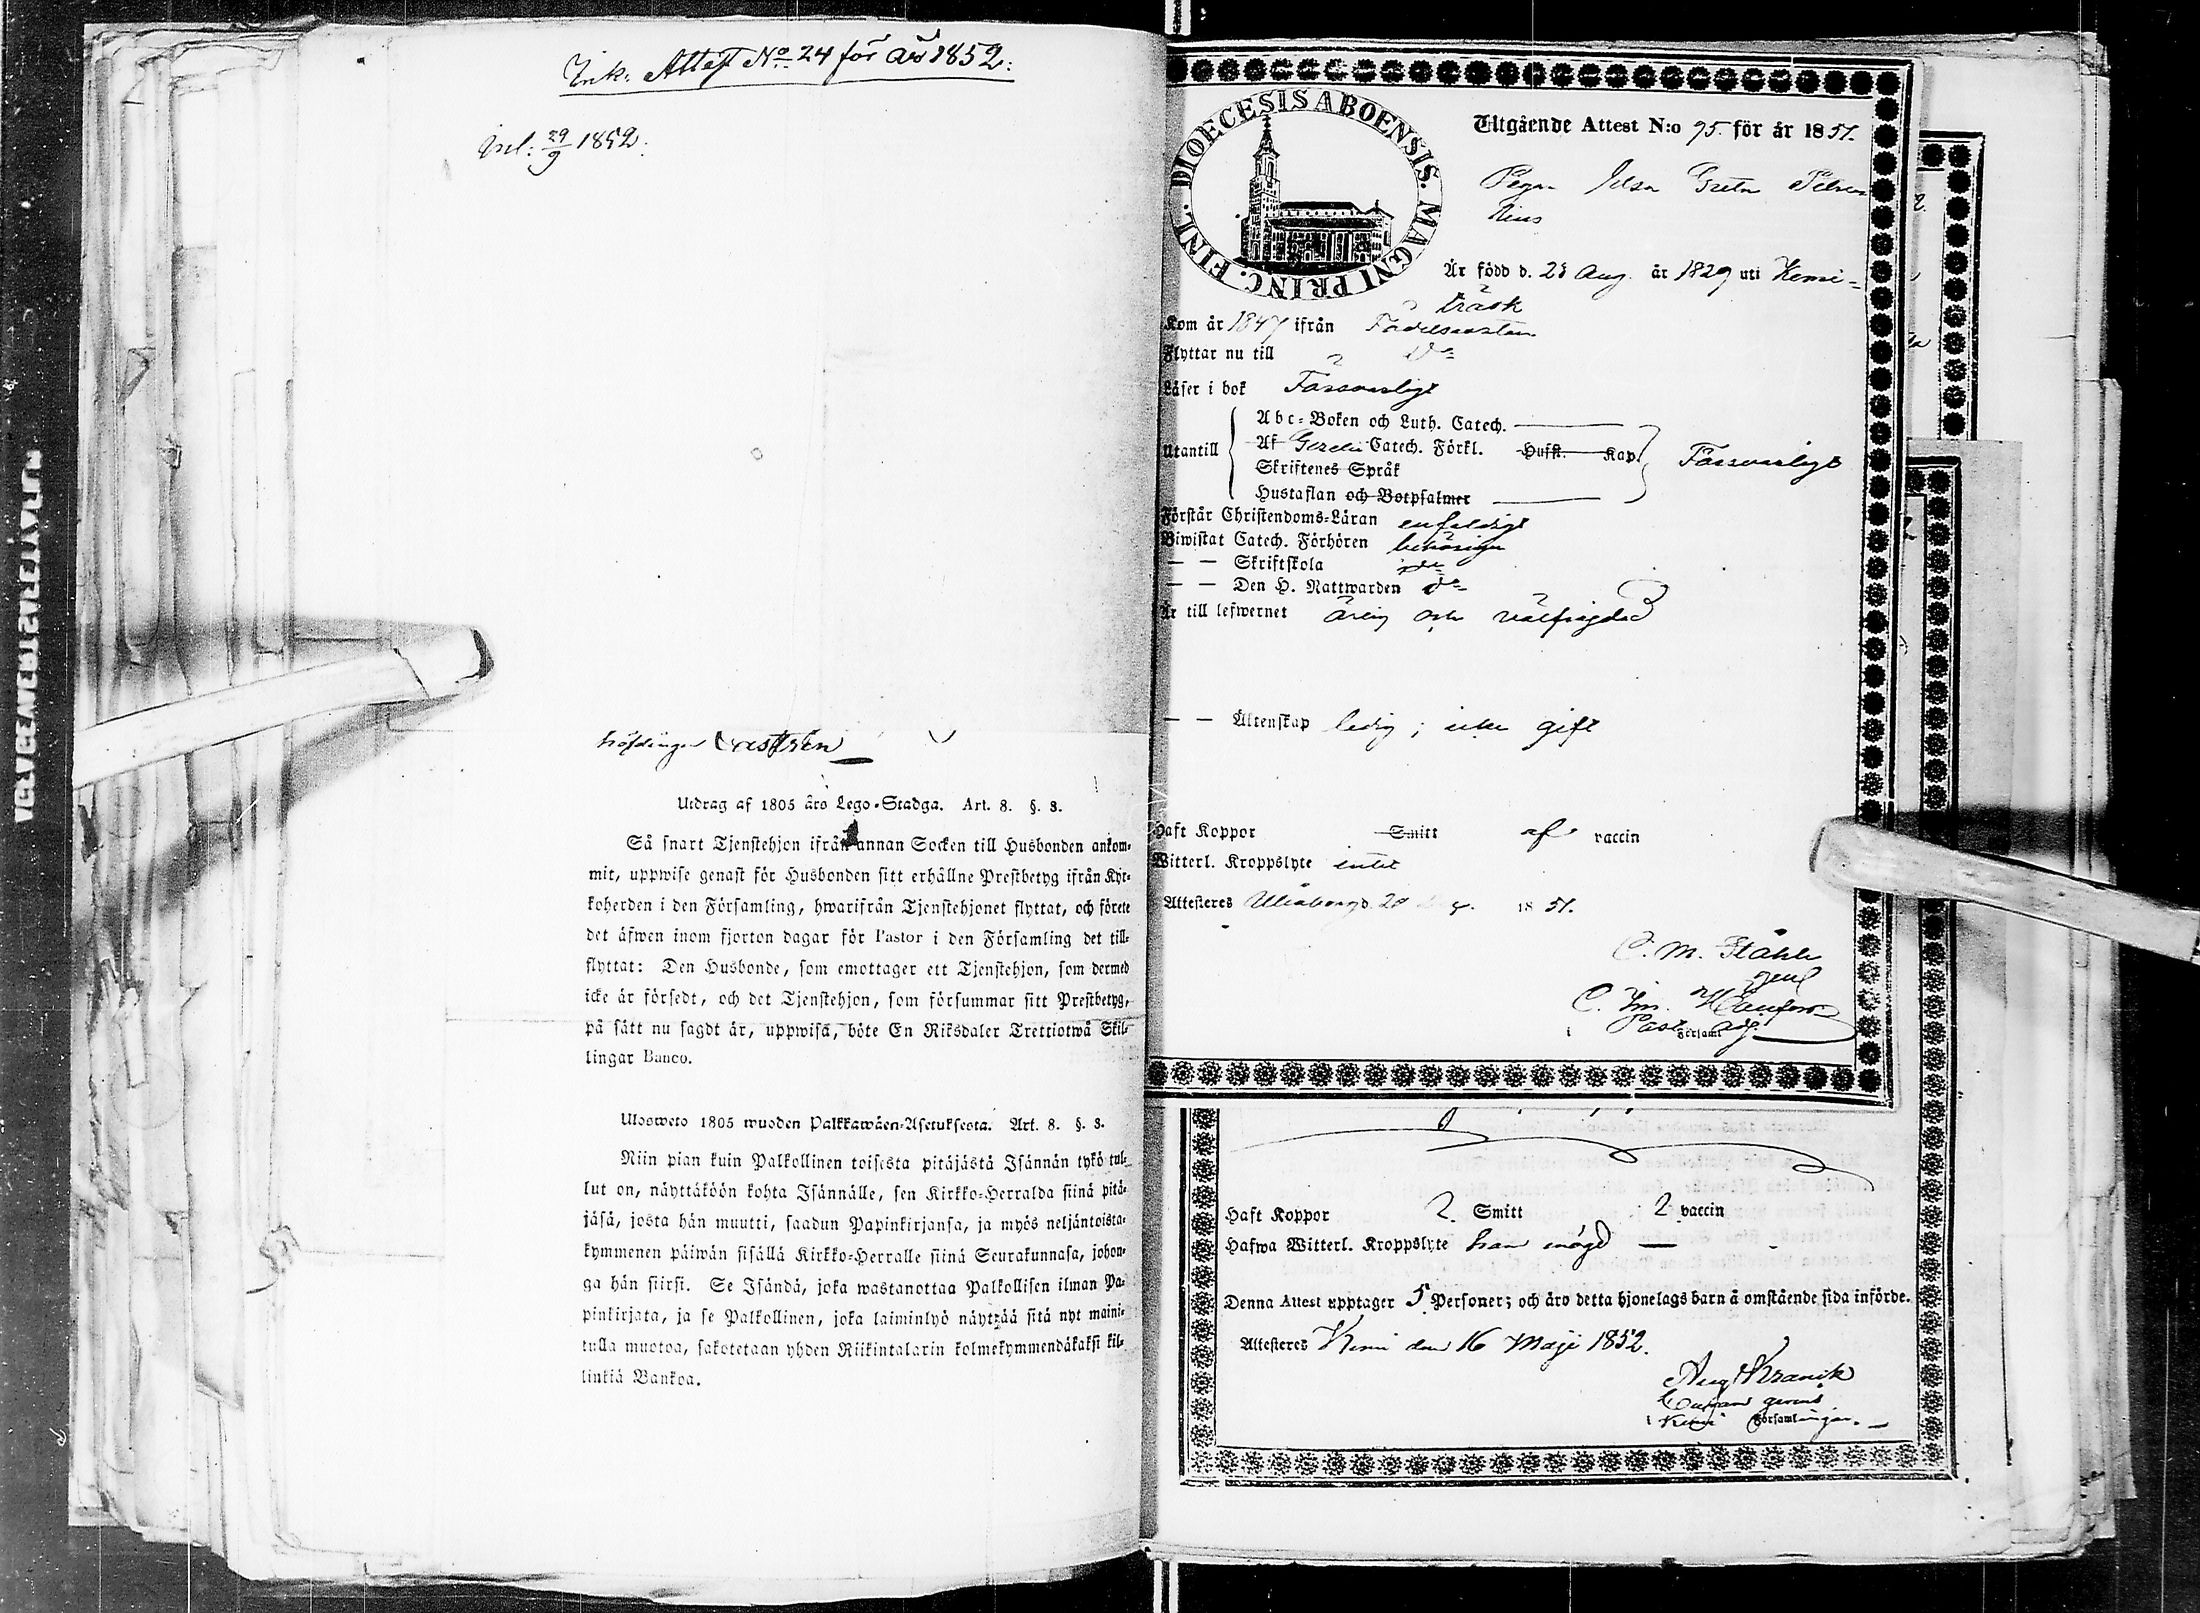 Ink: Attest No 24 för år 1852.
Inl: 29/9 1852.
Utdrag af 1805 års Lego-Stadga. Art. 8. §. 3.
Så snart Tjenstehjon ifrån annan Socken till Husbonden ankom-
mit, uppwise genast för Husbonden sitt erhållne Prestbetyg ifrån Kyr-
koherden i den Församling, hwarifrån Tjenstehjonet flyttat, och förete
det äfwen inom fjorton dagar för Pastor i den Församling det till-
flyttat: Den Husbonde, som emottager ett Tjenstehjon, som dermed
icke är försedt, och det Tjenstehjon, som försummar sitt Prestbetyg,
på sätt nu sagdt är, uppwisa, böte En Riksdaler Trettiotwå Skil-
lingar Banco.
Ulosweto 1805 wuoden Palkkawäen-Asetuksesta. Art. 8. §. 3.
Niin pian kuin Palkollinen toisesta pitäjästä Isännän tykö tul-
lut on, näyttäköön kohta Isännälle, sen Kirkko-Herralda siinä pitä-
jäsä, josta hän muutti, saadun Papinkirjansa, ja myös neljäntoista-
kymmenen päiwän sisällä Kirkko-Herralle siinä Seurakunnasa, johon-
ga hän siirsi. Se Isändä, joka wastanottaa Palkollisen ilman Pa-
pinkirjata, ja se Palkollinen, joka laiminlyö näyttää sitä nyt maini-
tulla muotoa, sakotetaan yhden Riikintalarin kolmekymmendäkaksi kil-
linkiä Bankoa.
DIOECESIS ABOENSIS. MAGNI PRINC. FINL.
Utgående Attest N:o 95. för år 1851.
Pigan Elsa Greta
Är född d. 28 Aug. år 1829 uti Kemi-
träsk
Kom år 1847 ifrån Födelseorten
Flyttar nu till do
Läser i bok Försvarligt
Abc-Boken och Luth. Catech.
Utantill Af Catech. Förkl. Hufst. Kap. Försvarligt
Skriftenes Språk
Hustaflan och Botpsalmer
Förstår Christendoms-Läran enfaldigt
Biwistat Catech. Förhören behörigen
— — Skriftskola do
— — Den H. Nattwarden do
Är till lefwernet ärlig och välfrägdad
— — Äktenskap ledig; icke gift
Haft Koppor Smitt af vaccin
Witterl. Kroppslyte intet
Attesteres Uleåborg d. 20 1851.
C. M. Ståhle
Past. adj.
i Församl.
Haft Koppor 2. Smitt 2 vaccin
Hafwa Witterl. Kroppslyte
Denna Attest upptager 5 Personer; och äro detta hjonelags barn å omstående sida införde.
Attesteres Kemi den 16 Maji 1852.
Aug Kranck
i Kemi Församlingar.